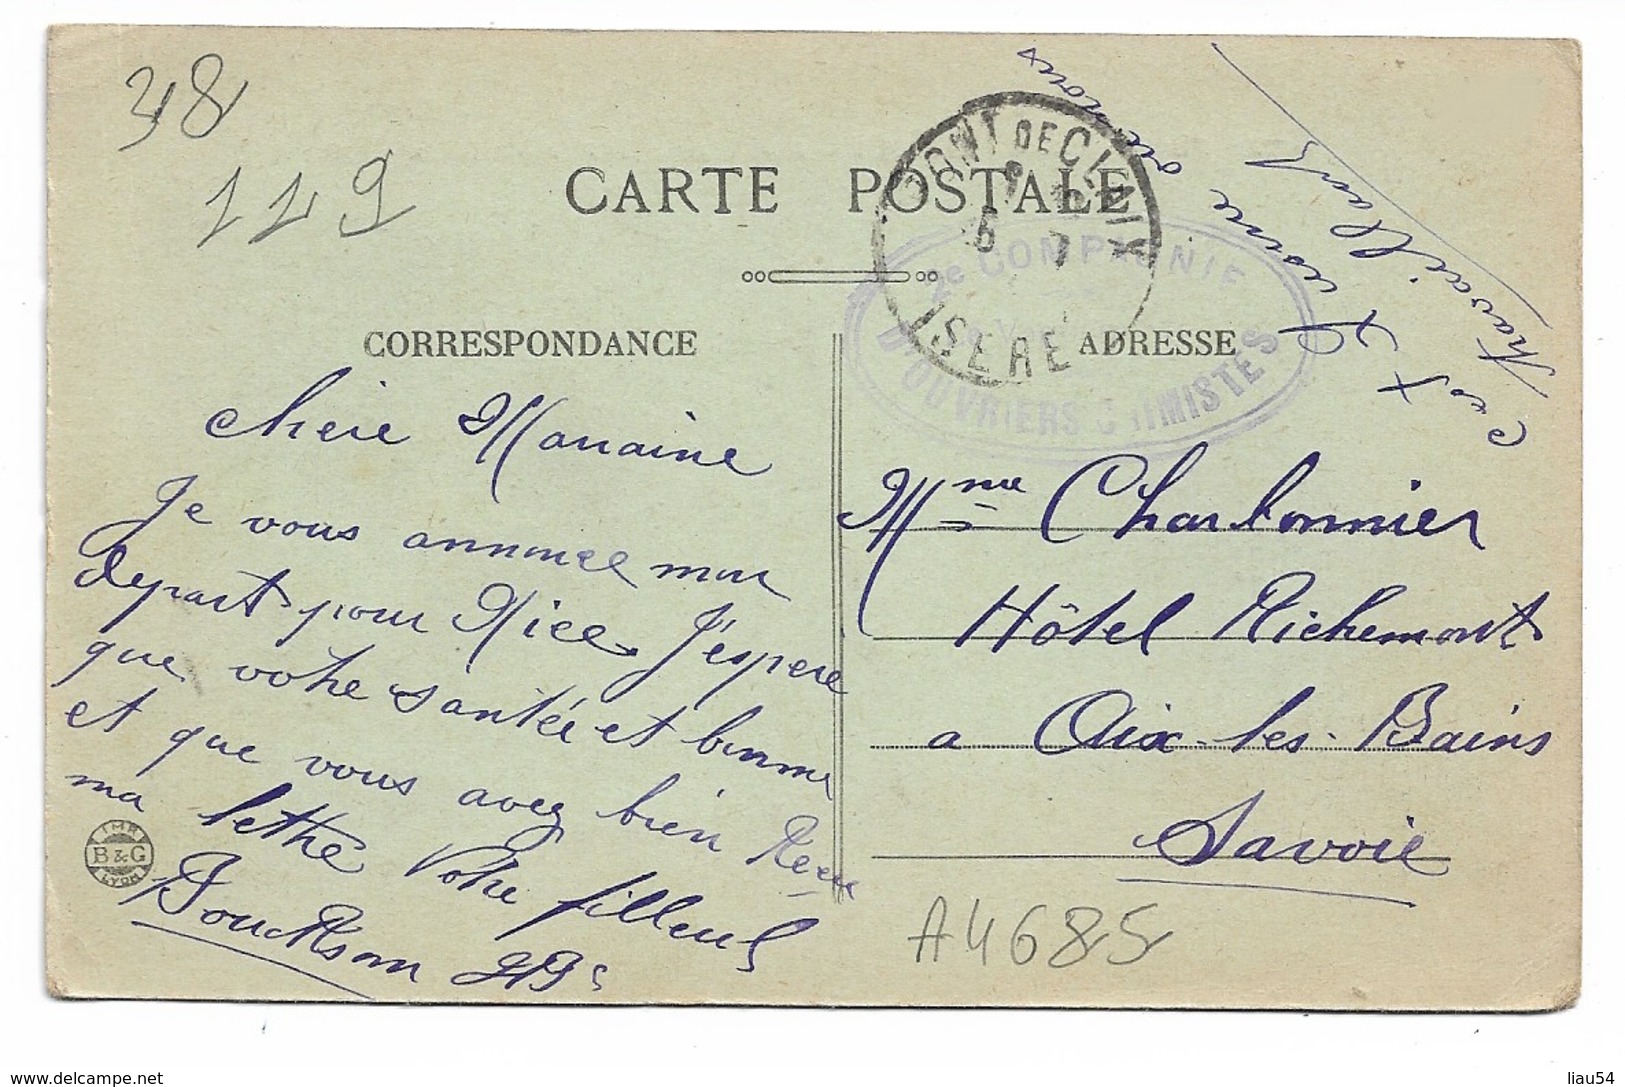 38
119
CARTE POSTALE
PONT DE CLAIX
6 7
ISERE
2e COMPAGNIE
D'OUVRIERS CHIMISTES
CORRESPONDANCE
ADRESSE
C'est l'usine ou nous
travaillant
chere Marraine
Je vous annonce mon
depart pour Nice J'espere
que votre santée et bonne
et que vous avez bien Recu
ma lettre Votre filleul
Mme Charbonnier
Hôtel Richemont
a Aix-les-Bains
Savoie
IMP.
B & G
LYON
A4685
delcampe.net
liau54